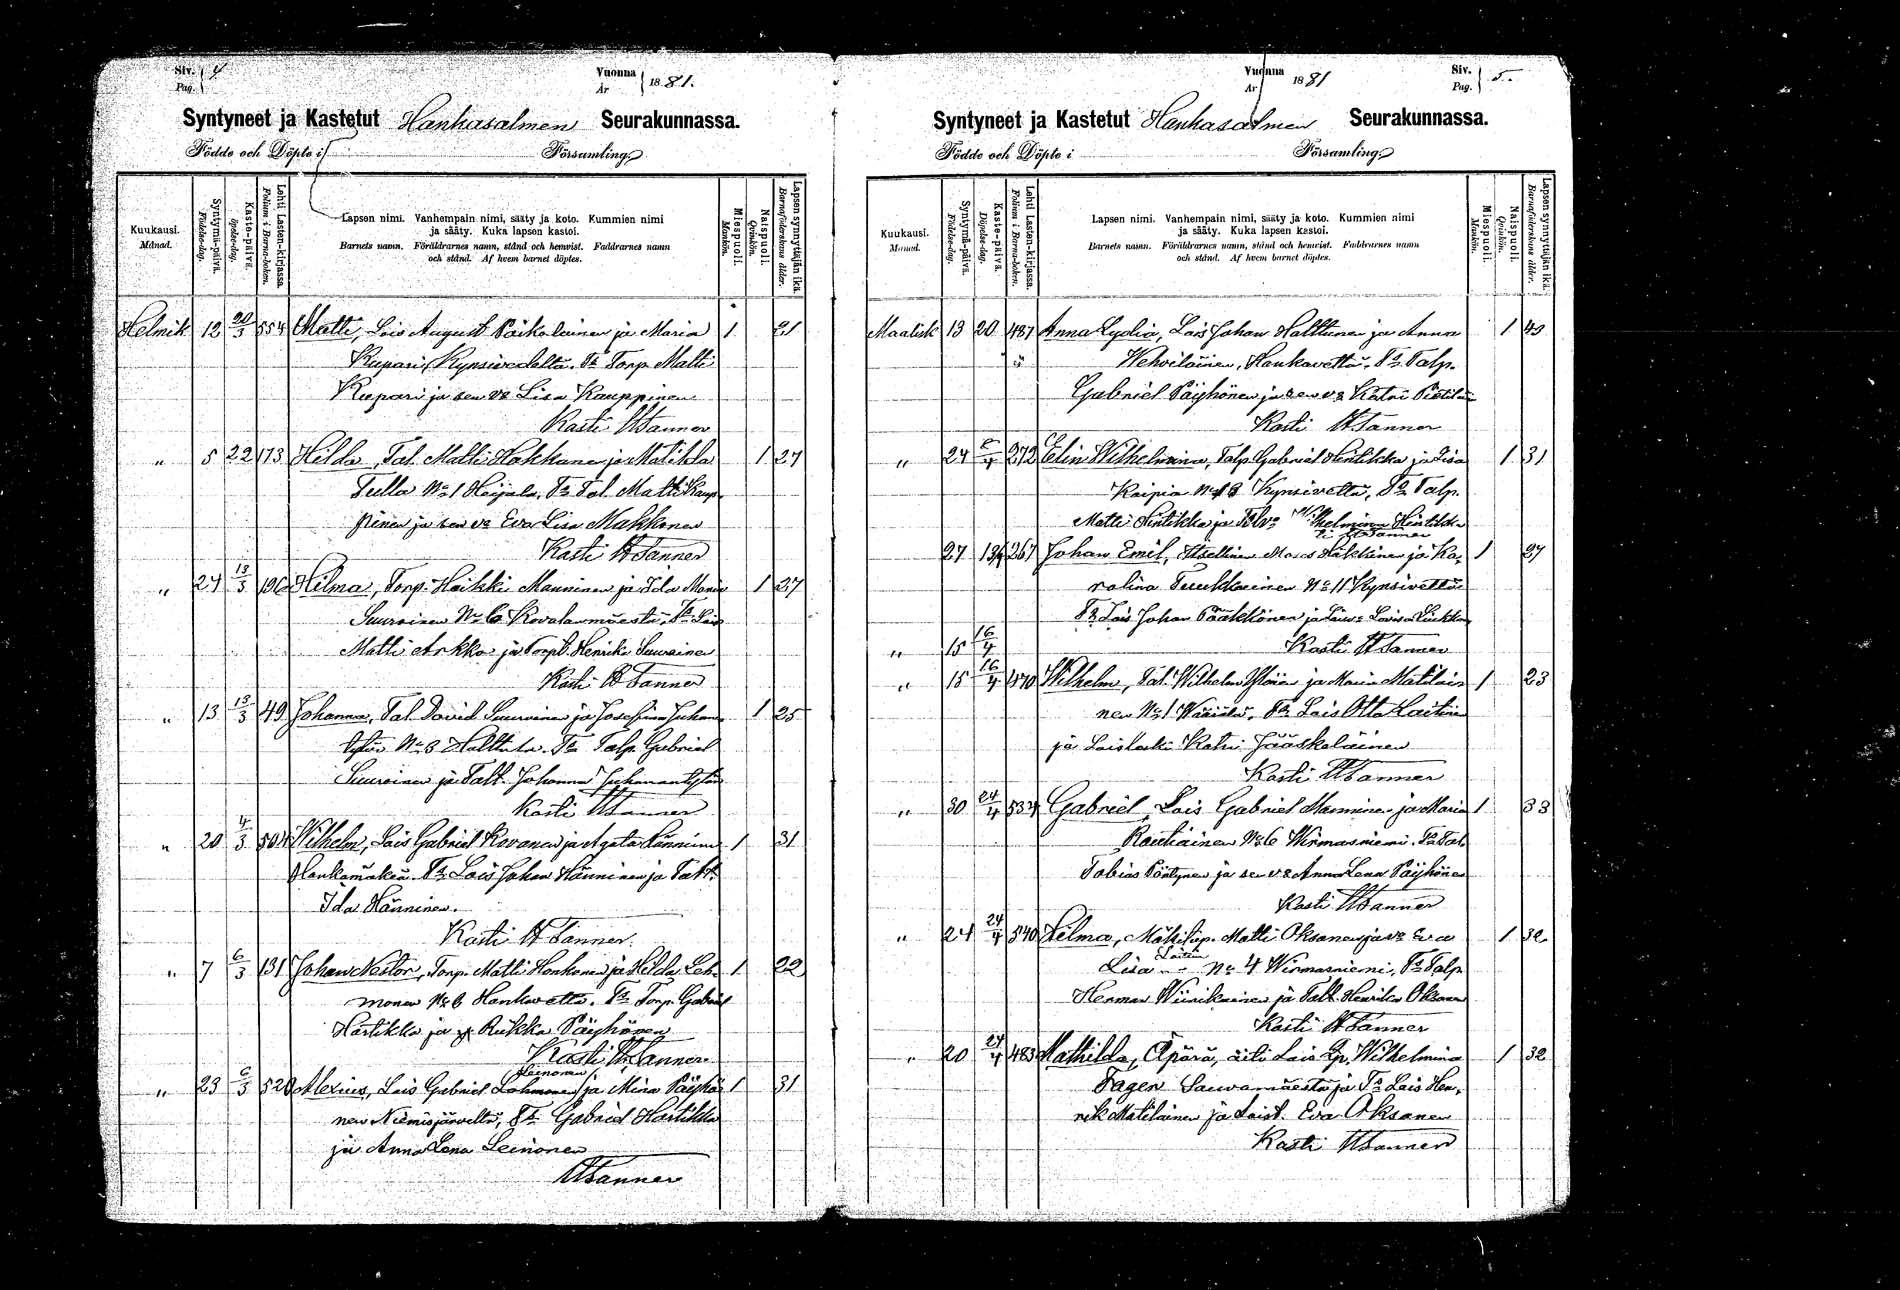 Siv. 4
Pag.
Vuonna 1881.
År
Syntyneet ja Kastetut Hankasalmen Seurakunnassa.
Födde och Döpte i Församling.
Kuukausi.
Månad.
Syntymä-päivä.
Födelse-dag.
Kaste-päivä.
Döpelse-dag.
Lehti Lasten-kirjassa.
Folium i Barna-boken.
Lapsen nimi. Vanhempain nimi, sääty ja koto. Kummien nimi
ja sääty. Kuka lapsen kastoi.
Barnets namn. Föräldrarnes namn, stånd och hemvist. Faddrarnes namn
och stånd. Af hvem barnet döptes.
Miespuoli.
Mankön.
Naispuoli.
Qvinkön.
Lapsen synnyttäjän ikä.
Barnaföderskans ålder.
Helmik 12 20/3 554 Matti, Lois August Päiko ja Maria 1 21
Kupari, Kynsivedeltä. Ts Torp. Matti
Kupari ja sen vo Lisa Kauppinen
Kasti WTanner
" 5 22 173 Hilda, Tal. Matti Hakkana ja Matilda 1 27
Tulla No 1 Ts Tal. Matti Kaup-
pinen ja sen vo Eva Lisa Makkonen
Kasti WTanner
" 24 13/3 196 Hilma, Torp. Heikki Manninen ja Ida Maria 1 27
Suuroinen No 6 Kovalanmäestä, Ts Lois
Matti Arkko ja Henrika Suuroinen
Kasti WTanner
" 13 13/3 49 Johanna, Tal. David Suuroinen ja Josefina Juhan- 1 25
tytär No 3 Ts Talp. Gabriel
Suuroinen ja Talt. Johanna Juhanantytär
Kasti WTanner
" 20 4/3 504 Wilhelm, Lois Gabriel Kovanen ja Agata Hänninen 1 31
Hankamäken. Ts Lois Johan Hänninen ja Talt.
Ida Hänninen.
Kasti WTanner.
" 7 6/3 131 Johan Nestor, Torp. Matti Honkonen ja Hilda Leh- 1 22
monen No 6 Hankavetta. Ts Torp. Gabriel
Hartikka ja Riikka Päyhönen
Kasti WTanner.
Leinonen
" 23 6/3 520 Alexius, Lois Gabriel Lahmonen ja Mina Päyhö- 1 31
nen Niemisjärveltä, Ts Gabriel Hartikka
ja Anna Lena Leinonen
WTanner
Vuonna 1881
År
Siv. 5.
Pag.
Syntyneet ja Kastetut Hankasalmen Seurakunnassa.
Födde och Döpte i Församling.
Kuukausi.
Månad.
Syntymä-päivä.
Födelse-dag.
Kaste-päivä.
Döpelse-dag.
Lehti Lasten-kirjassa.
Folium i Barna-boken.
Lapsen nimi. Vanhempain nimi, sääty ja koto. Kummien nimi
ja sääty. Kuka lapsen kastoi.
Barnets namn. Föräldrarnes namn, stånd och hemvist. Faddrarnes namn
och stånd. Af hvem barnet döptes.
Miespuoli.
Mankön.
Naispuoli.
Qvinkön.
Lapsen synnyttäjän ikä.
Barnaföderskans ålder.
Maalisk 13 20 487 Anna Lydia, Lois Johan Halttunen ja Anna 1 40
Wehviläinen, Hankavettä, Ts Talp.
Gabriel Päyhönen ja sen vo Katri
Kasti WTanner
" 24 2/4 272 Elin Wilhelmina, Talp. Gabriel Hintikka ja Lisa 1 31
Kaipia No 13 Kynsivettä, Ts Talp.
Matti Hintikka ja Wilhelmina Hintikka
WTanner
27 13/4 267 Johan Emil, Itsellinen Häkkinen ja Ka- 1 27
rolina No 11 Kynsivettä
Ts Lois Johan Pääkkönen ja Lovisa
" 15 16/4 Kasti WTanner
" 15 16/4 470 Wilhelm, Tal. Wilhelm ja Maria Matilai- 1 23
nen No 1 Ts Lois Otto Laitinen
ja Katri Jääskeläinen
Kasti WTanner
" 30 24/4 534 Gabriel, Lois Gabriel Manninen ja Maria 1 33
Rautiainen No 6 Wirmasniemi. Ts Tal.
Tobias Pöntynen ja sen vo Anna Lena Päyhönen
Kasti WTanner
" 24 24/4 540 Hilma, Mäkitup. Matti Oksanen ja vo Eva 1 32
Lisa Laitinen No 4 Wirmasniemi, Ts Talp.
Herman Wiinikainen ja Talt. Henrika Oksanen
Kasti WTanner
" 20 24/4 483 Mathilda, Äpärä, äiti Lois Lp. Wilhelmina 1 32
Fager Sauvamäestä ja Ts Lois Hen-
rik Matilainen ja Loist. Eva Oksanen
Kasti WTanner